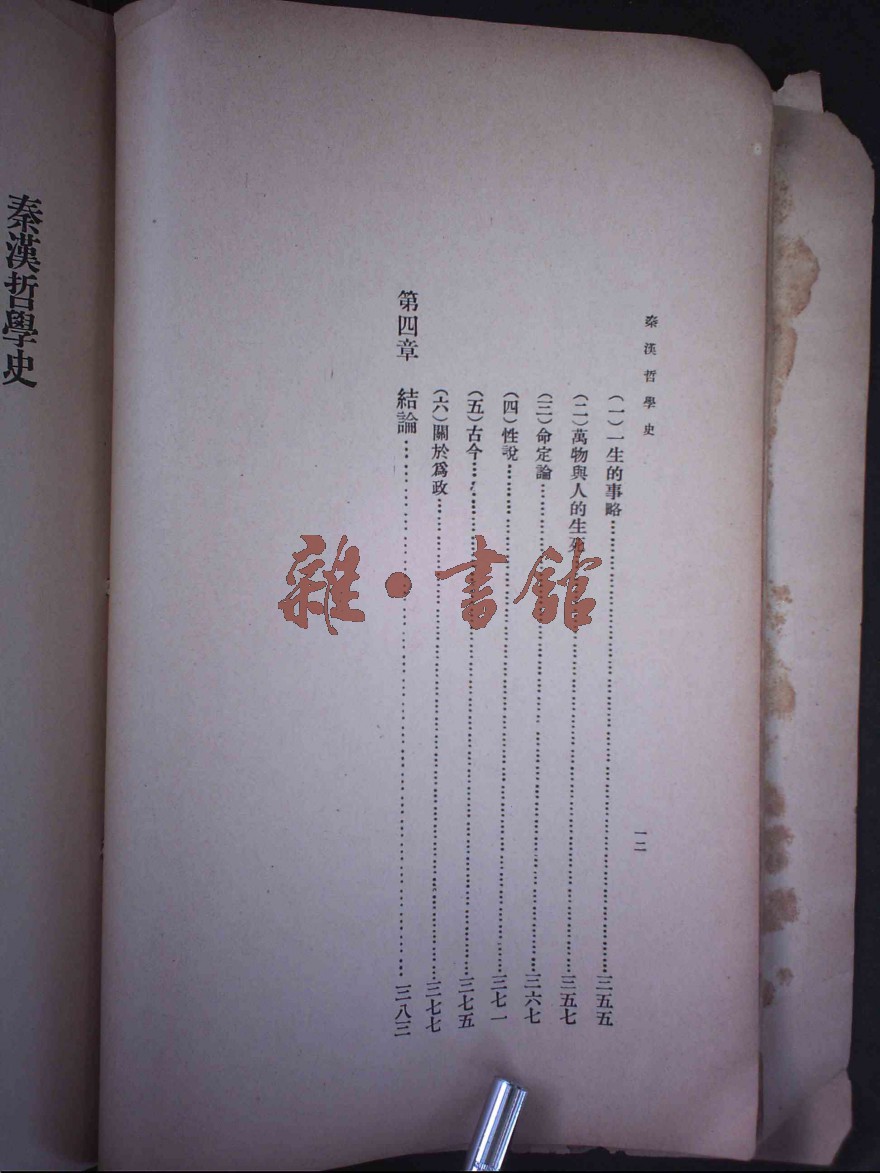 秦漢哲學史
一二
(一)一生的事略……三五五
(二)萬物與人的生死……三五七
(三)命定論……三六七
(四)性說……三七一
(五)古今……三七五
(六)關於爲政……三七七
第四章 結論……三八三
雜·書館
秦漢哲學史